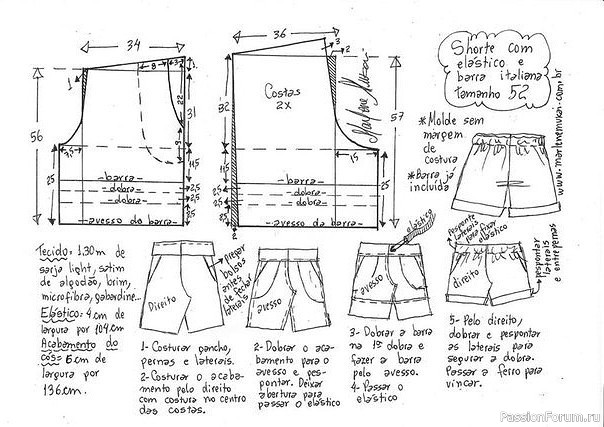 34
36
8
3
1
22
9
31
56
7,5
25
11,5
2,5
2,5
2,5
-barra-
-dobra-
-dobra-
-avesso da barra-
3
2
Costas
2X
32
57
15
11,5
25
25
25
25
2
-barra-
-dobra-
-dobra-
-avesso da barra-
Marlene Mukai
Shorte com
elástico e
barra italiana
tamanho 52
www.marlenemukai.com.br
*Molde sem
margem
de
costura
*Barra já
incluída
Tecido= 1.30m de
sarja light, satim
de algodão, brim,
microfibra, gabardine...
Elástico= 4cm de
largura por 104cm
Acabamento do
cós= 6cm de
largura por
136cm.
Direito
Pregar
bolsos
antes
de fechar
laterais
1- Costurar gancho,
pernas e laterais.
2- Costurar o acaba-
mento pelo direito
com costura no centro
das costas.
avesso
2- Dobrar o aca-
bamento para o
avesso e pes-
pontar. Deixar
abertura para
passar o elástico
elástico
avesso
3- Dobrar a barra
na 1ª dobra e
fazer a barra
pelo avesso.
4- Passar o
elástico
Pesponte
laterais
para fixar
elástico
direito
pespontar
laterais
e entrepernas
5- Pelo direito,
dobrar e pespontar
as laterais para
segurar a dobra.
Passar a ferro para
vincar.
PassionForum.ru